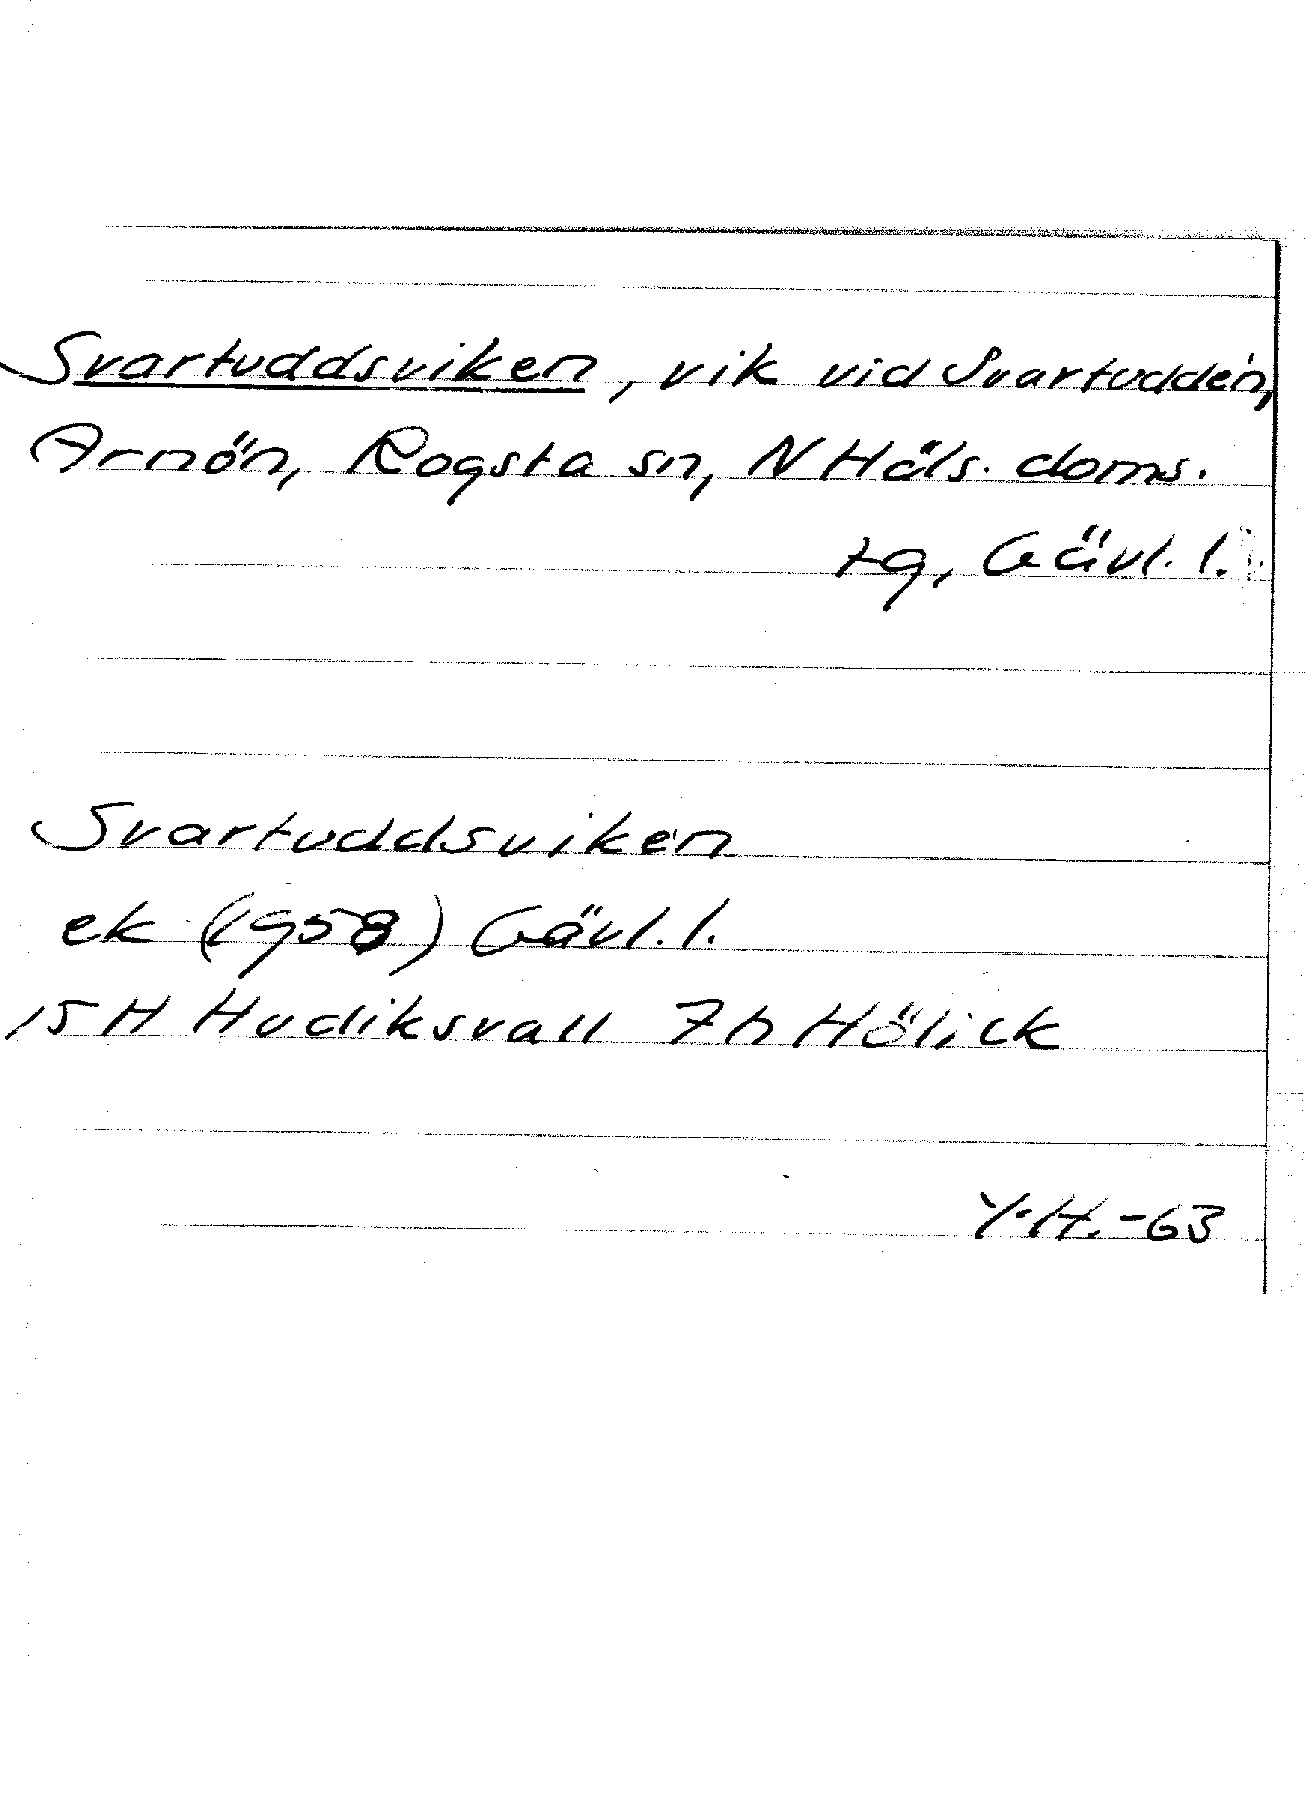 Svartuddsviken, vik vid Svartudden,
Arnön, Rogsta sn, N Häls. doms.
tg, Gävl. l.
Svartuddsviken
ek (1958) Gävl. l.
15 H Hudiksvall 7h Hölick
Y.H. -63